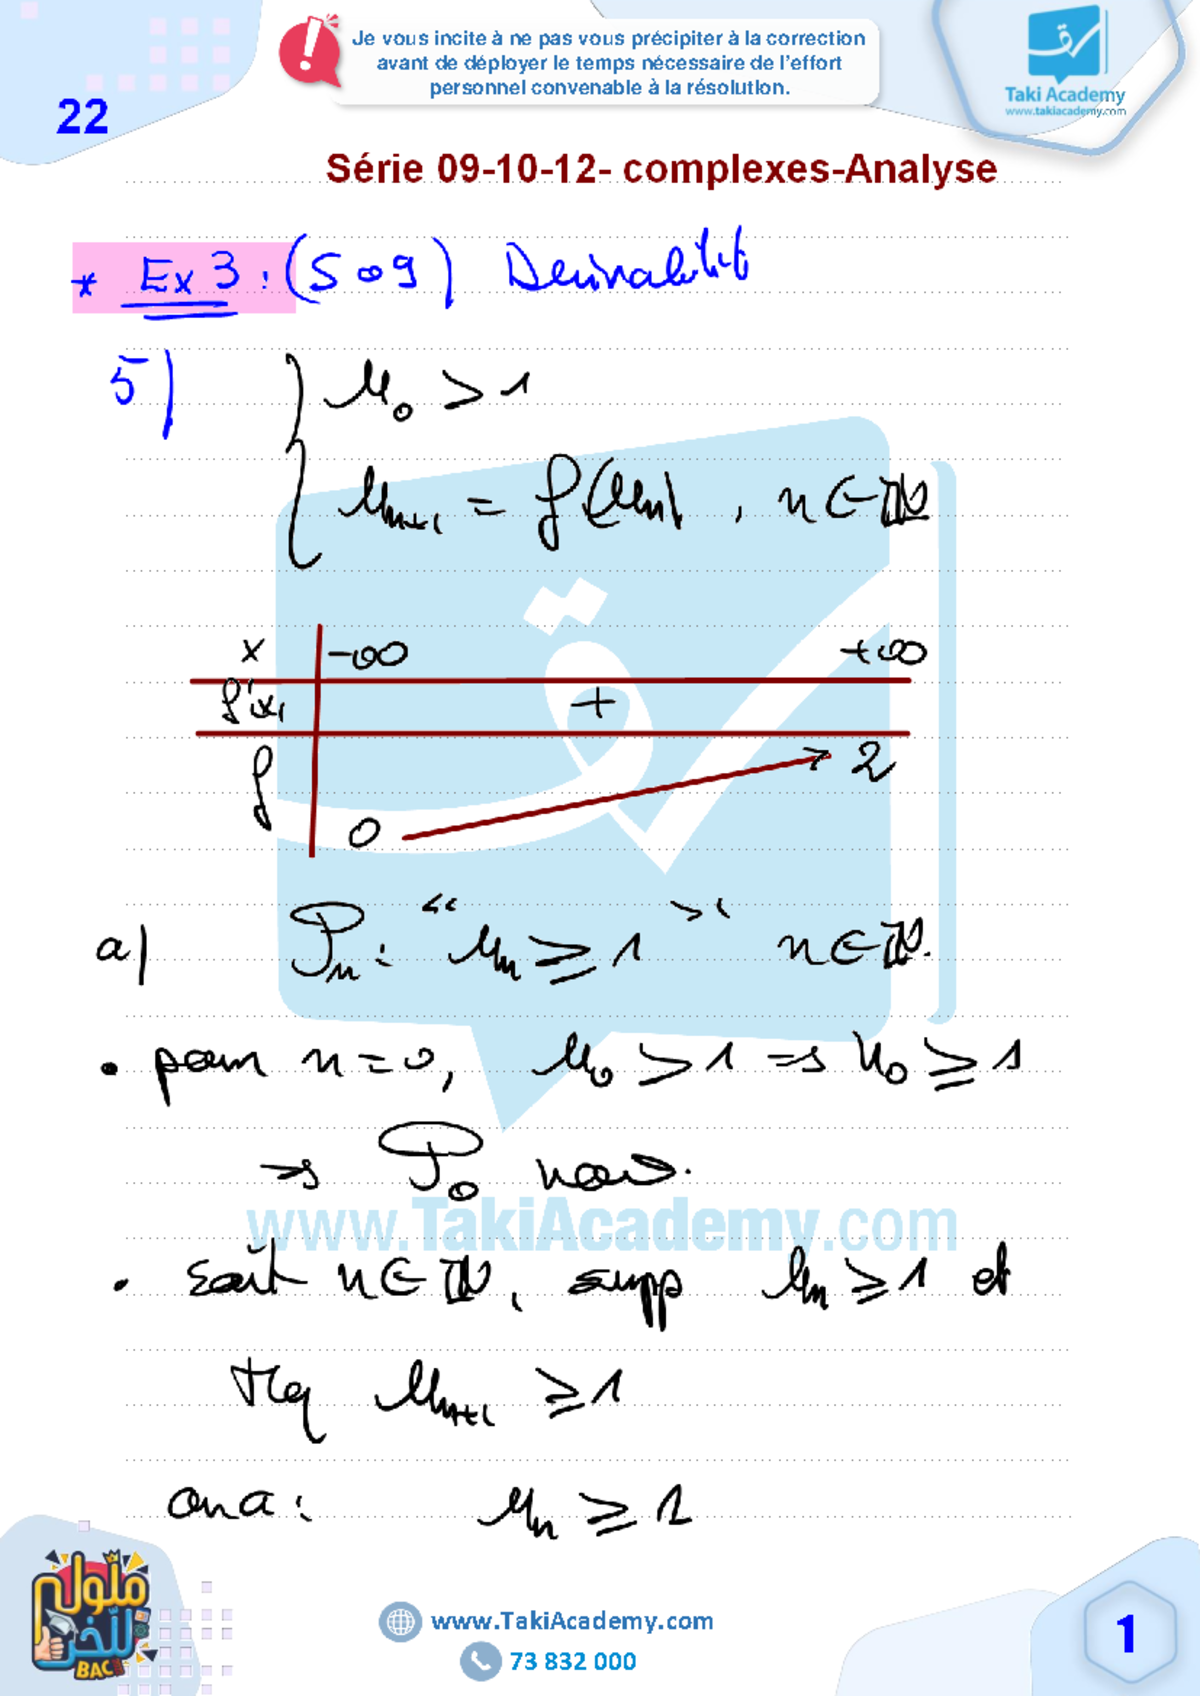 Je vous incite à ne pas vous précipiter à la correction
avant de déployer le temps nécessaire de l'effort
personnel convenable à la résolution.
Taki Academy
www.takiacademy.com
22
Série 09-10-12- complexes-Analyse
* Ex 3 : (S 09) Dérivabilité
5) { U₀ > 1
Uₙ₊₁ = f(Uₙ) , n ∈ ℕ
x -∞ +∞
f'(x) +
f 0 2
a) Pₙ : " Uₙ ≥ 1 " n ∈ ℕ.
• pour n = 0, U₀ > 1 ⇒ U₀ ≥ 1
⇒ P₀ vraie.
www.TakiAcademy.com
• soit n ∈ ℕ, supp Uₙ ≥ 1 et
Mq Uₙ₊₁ ≥ 1
on a : Uₙ ≥ 1
ملوله للآخر
BAC
www.TakiAcademy.com
73 832 000
1